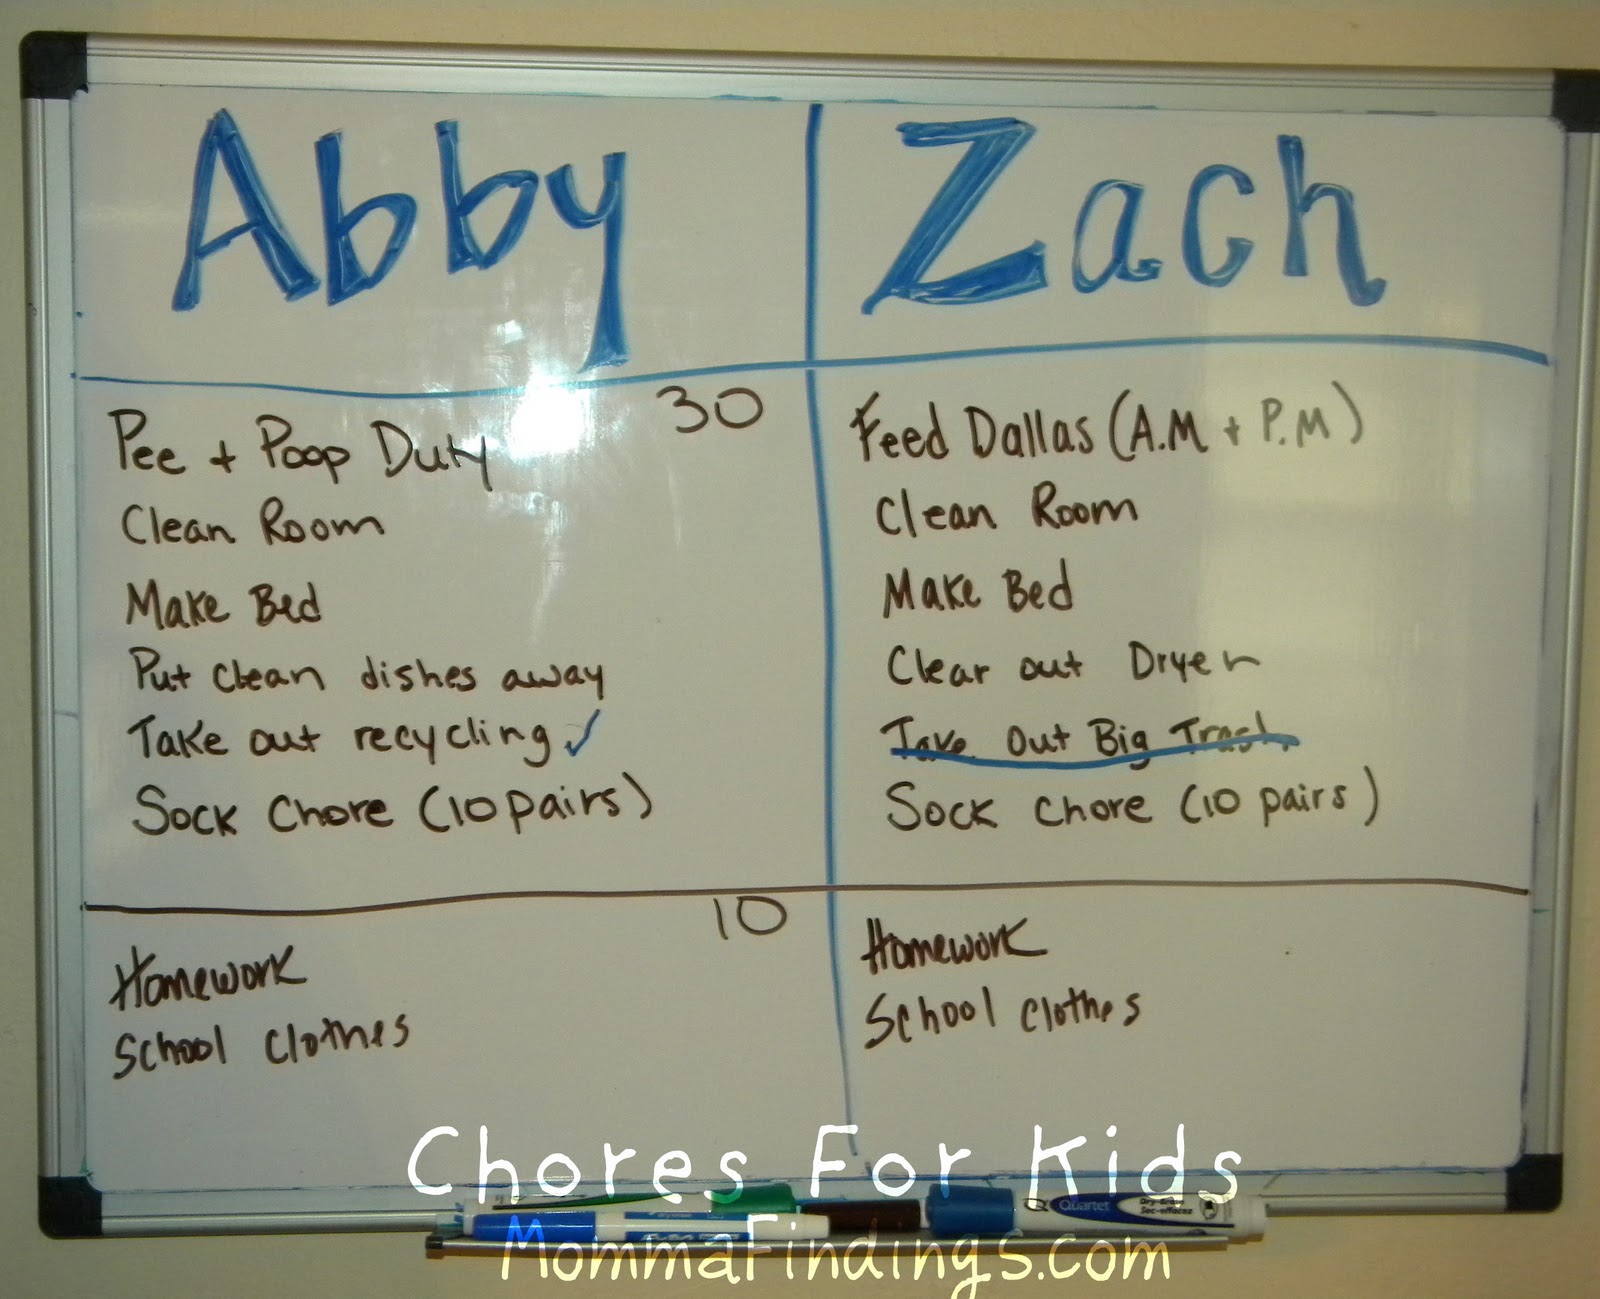 Abby
Zach
30
Pee + Poop Duty
Clean Room
Make Bed
Put clean dishes away
Take out recycling ✓
Sock Chore (10 pairs)
Feed Dallas (A.M + P.M)
Clean Room
Make Bed
Clear out Dryer
Take Out Big Trash
Sock Chore (10 pairs)
10
Homework
School Clothes
Homework
School Clothes
Chores For Kids
Quartet
Dry-Erase
MommaFindings.com